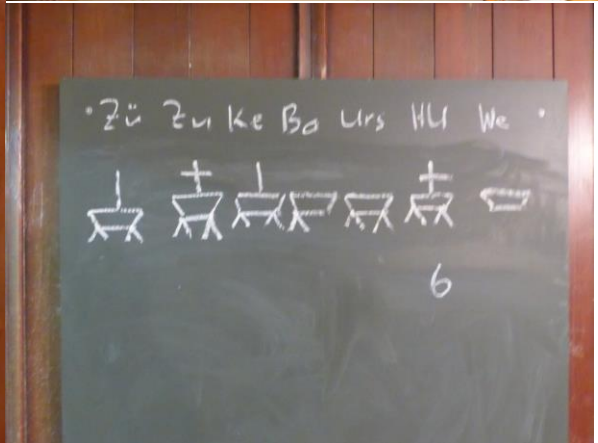 Zü Zu Ke Bo Urs HU We
6